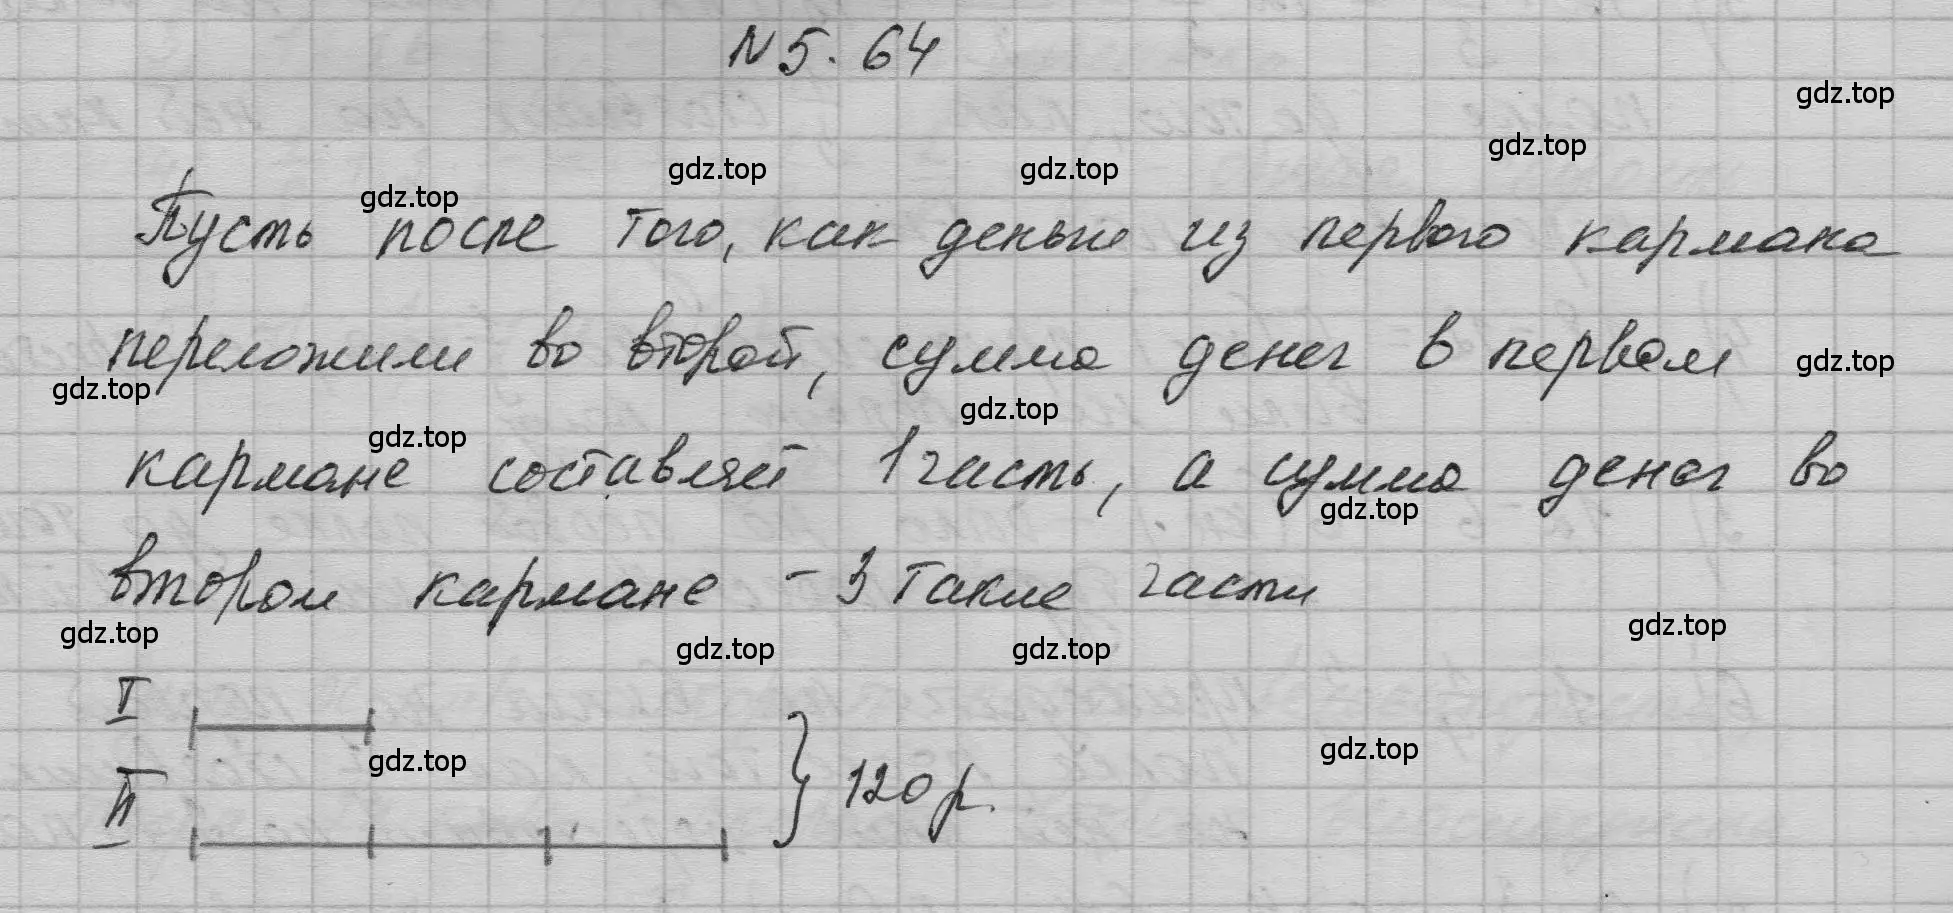 N 5. 64
gdz.top
gdz.top
gdz.top gdz.top
gdz.top
Пусть после того, как деньги из первого кармана
переложили во второй, сумма денег в первом
gdz.top gdz.top
gdz.top
gdz.top
кармане составляет 1 часть, а сумма денег во
gdz.top
втором кармане - 3 такие части
gdz.top gdz.top gdz.top gdz.top
I
gdz.top gdz.top
II } 120 р.